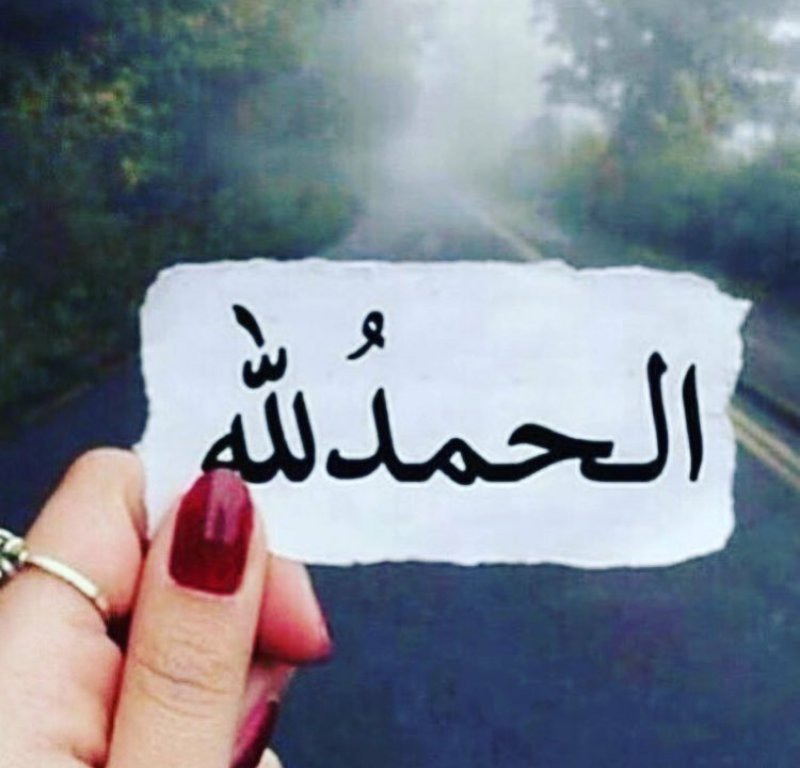 الحمدُللّٰه